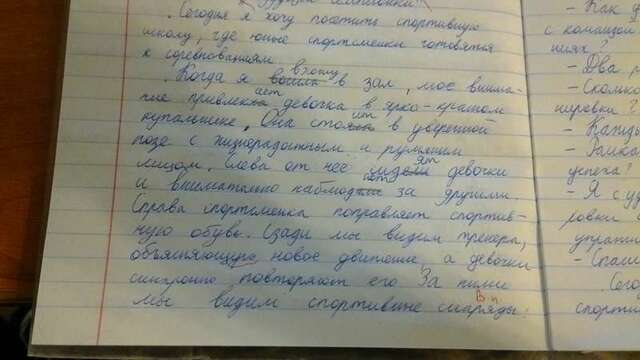 Будущие чемпионки!
Сегодня я хочу посетить спортивную
школу, где юные спортсменки готовятся
к соревнованиям.
вхожу
Когда я вошла в зал, мое внима-
ает
ние привлекла девочка в ярко-красном
ит
купальнике. Она стояла в уверенной
позе с жизнерадостным и румяным
лицом. Слева от нее сидели девочки
ят
ют
и внимательно наблюдали за другими.
Справа спортсменка поправляет спортив-
ную обувь. Сзади мы видим тренера,
объясняющую новое движение, а девочки
синхронно повторяют его. За ними
мы видим спортивные снаряды.
В п
- Как
с командой
ниях?
- Два
- Сколько
нировки?
- Кажды
успеха?
- Я
ровки
- Спаси
Сего
спортив